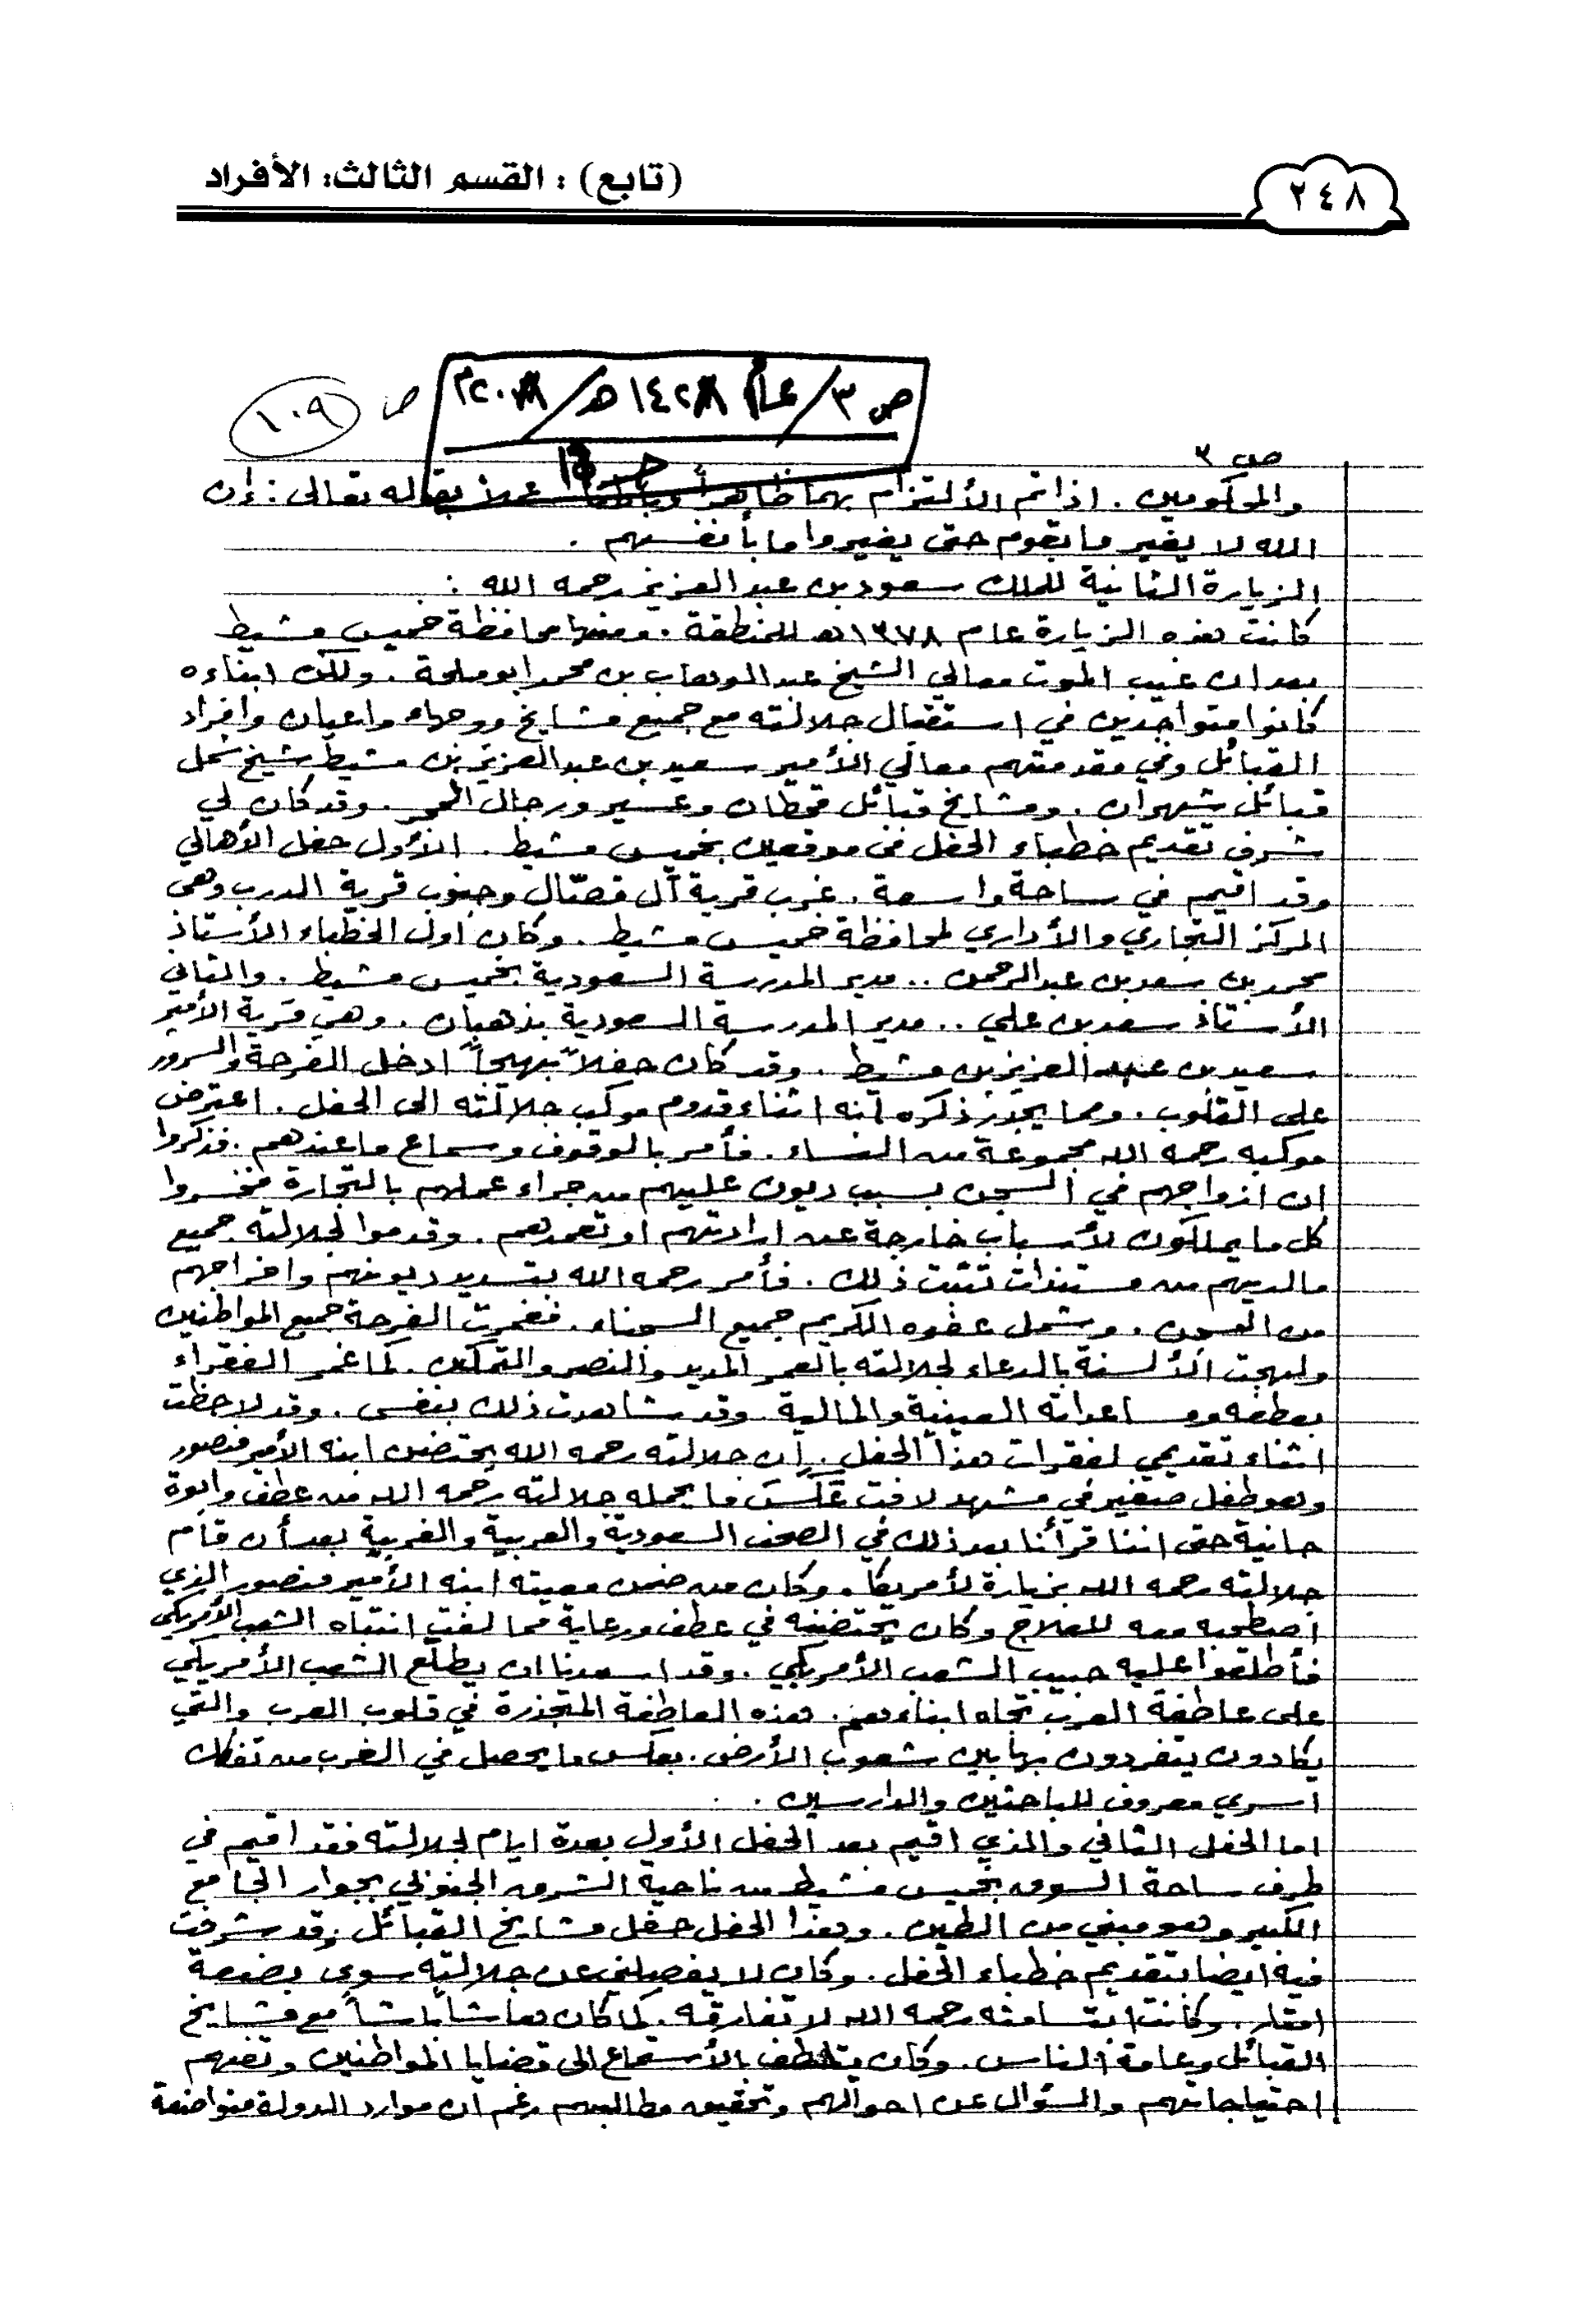 ٢٤٨
(تابع) : القسم الثالث: الأفراد
ص ٣/عام ١٤٢٨هـ/٢٠٠٨م
ص ١٠٩
ص ٣
والمحكومين . اذا تم الألتزام بهما ظاهراً وباطناً عملاً بقوله تعالى : إن
الله لا يغير ما بقوم حتى يغيروا ما بأنفسهم .
الزيارة الثانية للملك سعود بن عبدالعزيز رحمه الله :
كانت هذه الزيارة عام ١٣٧٨هـ للمنطقة . ومنها محافظة خميس مشيط
بعد ان غيب الموت معالي الشيخ عبدالوهاب بن محمد ابوملحة . ولكن ابناءه
كانوا متواجدين في استقبال جلالته مع جميع مشايخ ووجهاء واعيان وافراد
القبائل وفي مقدمتهم معالي الأمير سعيد بن عبدالعزيز بن مشيط شيخ شمل
قبائل شهران . ومشايخ قبائل قحطان وعسير ورجال الحجر . وقد كان لي
شرف تقديم خطباء الحفل في موقعين بخميس مشيط . الأول حفل الأهالي
وقد اقيم في ساحة واسعة . غرب قرية آل قصّال وجنوب قرية الدرب وهي
المركز التجاري والأداري لمحافظة خميس مشيط . وكان أول الخطباء الأستاذ
محمد بن سعد بن عبدالرحمن .. مدير المدرسة السعودية بخميس مشيط . والثاني
الأستاذ سعد بن علي .. مدير المدرسة السعودية بذهبان . وهي قرية الأمير
سعيد بن عبدالعزيز بن مشيط . وقد كان حفلاً بهيجاً ادخل الفرحة والسرور
على القلوب . ومما يجدر ذكره أنه اثناء قدوم موكب جلالته الى الحفل . اعترض
موكبه رحمه الله مجموعة من النساء . فأمر بالوقوف وسماع ما عندهم . فذكروا
ان ازواجهم في السجن بسبب ديون عليهم من جراء عملهم بالتجارة فخسروا
كل ما يملكون لأسباب خارجة عن ارادتهم او تعمدهم . وقدموا لجلالته جميع
مالديهم من مستندات تثبت ذلك . فأمر رحمه الله بتسديد ديونهم وافراجهم
من السجن . وشمل عفوه الكريم جميع السجناء . فغمرت الفرحة جميع المواطنين
ولهجت الألسنة بالدعاء لجلالته بالعمر المديد والنصر والتمكين . كما غمر الفقراء
بعطفه ومساعداته العينية والمالية وقد شاهدت ذلك بنفسي . وقد لاحظت
اثناء تقديمي لفقرات هذا الحفل . إن جلالته رحمه الله يحتضن ابنه الأمير منصور
وهو طفل صغير في مشهد لافت عكس ما يحمله جلالته رحمه الله من عطف وابوة
حانية حتى اننا قرأنا بعد ذلك في الصحف السعودية والعربية والغربية بعد أن قام
جلالته رحمه الله بزيارة لأمريكا . وكان من ضمن معيته ابنه الأمير منصور الذي
اصطحبه معه للعلاج وكان يحتضنه في عطف ورعاية مما لفت انتباه الشعب الأمريكي
فأطلقوا عليه حبيب الشعب الأمريكي . وقد اسعدنا ان يطلع الشعب الأمريكي
على عاطفة العرب تجاه ابناءهم . هذه العاطفة المتجذرة في قلوب العرب والتي
يكادون يتفردون بها بين شعوب الأرض . بعكس ما يحصل في الغرب من تفكك
أسري معروف للباحثين والدارسين .
اما الحفل الثاني والذي اقيم بعد الحفل الأول بعدة ايام لجلالته فقد اقيم في
طرف ساحة السوق بخميس مشيط من ناحية الشرق الجنوبي بجوار الجامع
الكبير وهو مبني من الطين . وهذا الحفل حفل مشايخ القبائل . وقد شرفت
فيه ايضا بتقديم خطباء الحفل . وكان لا يفصلني عن جلالته سوى بضعة
امتار . وكانت ابتسامته رحمه الله لا تفارقه . كما كان هاشاً باشاً مع مشايخ
القبائل وعامة الناس . وكان يتلطف بالأستماع الى قضايا المواطنين وتفهم
احتياجاتهم والسؤال عن احوالهم وتحقيق مطالبهم رغم ان موارد الدولة متواضعة